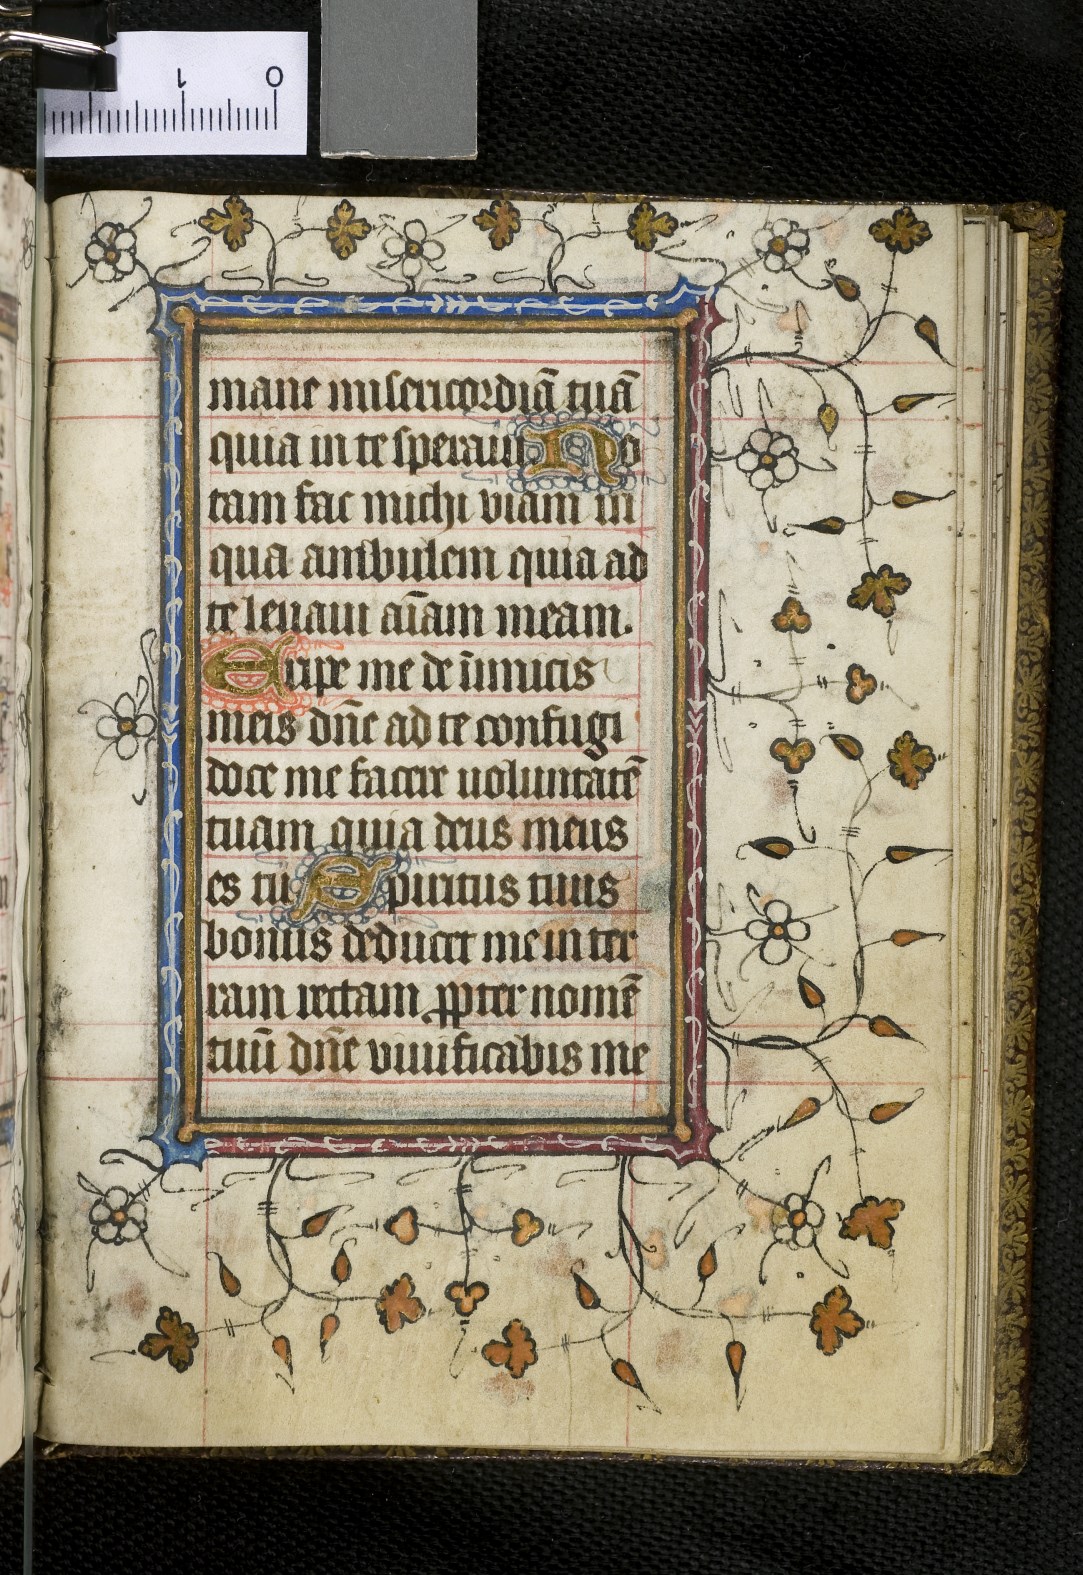 1 0
mane misericordiā tuā
quia in te speraui No
tam fac michi viam in
qua ambulem quia ad
te leuaui aīam meam.
Eripe me de inimicis
meis dn̄e ad te confugi
doce me facere uoluntatē
tuam quia deus meus
es tu Spiritus tuus
bonus deducet me in ter
ram rectam ꝓpter nomē
tuū dn̄e viuificabis me